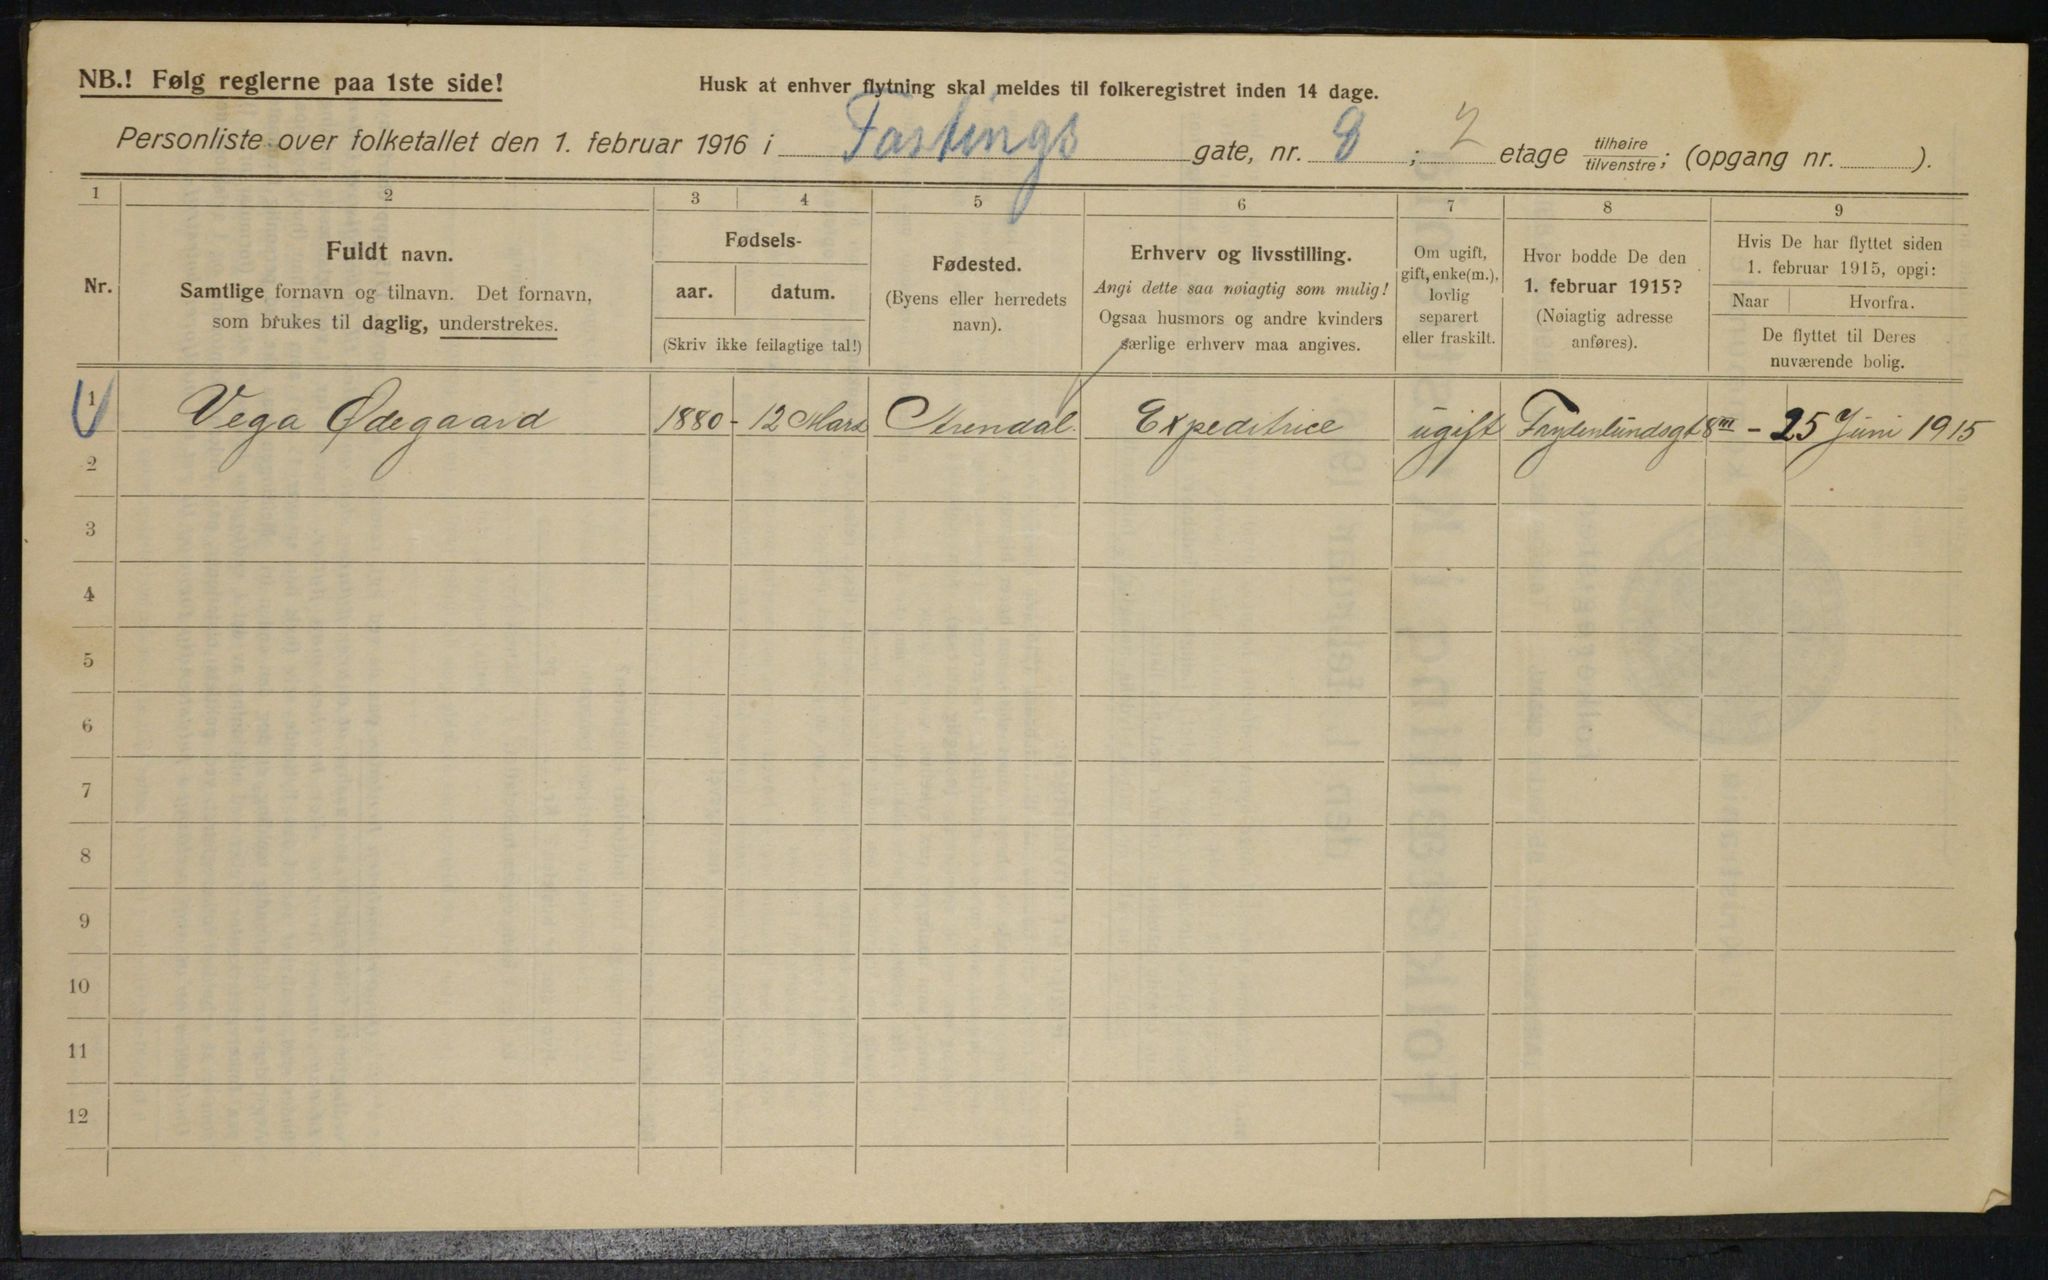 NB.! Følg reglerne paa 1ste side!
Husk at enhver flytning skal meldes til folkeregistret inden 14 dage.
Personliste over folketallet den 1. februar 1916 i Fastings gate, nr. 8; 2 etage tilhøire/tilvenstre; (opgang nr. ).
1 2 3 4 5 6 7 8 9
Nr.
Fuldt navn.
Samtlige fornavn og tilnavn. Det fornavn,
som brukes til daglig, understrekes.
Fødsels-
aar. datum.
(Skriv ikke feilagtige tal!)
Fødested.
(Byens eller herredets
navn).
Erhverv og livsstilling.
Angi dette saa nøiagtig som mulig!
Ogsaa husmors og andre kvinders
særlige erhverv maa angives.
Om ugift,
gift, enke(m.),
lovlig
separert
eller fraskilt.
Hvor bodde De den
1. februar 1915?
(Nøiagtig adresse
anføres).
Hvis De har flyttet siden
1. februar 1915, opgi:
Naar Hvorfra.
De flyttet til Deres
nuværende bolig.
1 Vega Ødegaard 1880 - 12 Mars Arendal Expeditrice ugift Frydenlundsgt 8 III - 25 Juni 1915
2
3
4
5
6
7
8
9
10
11
12